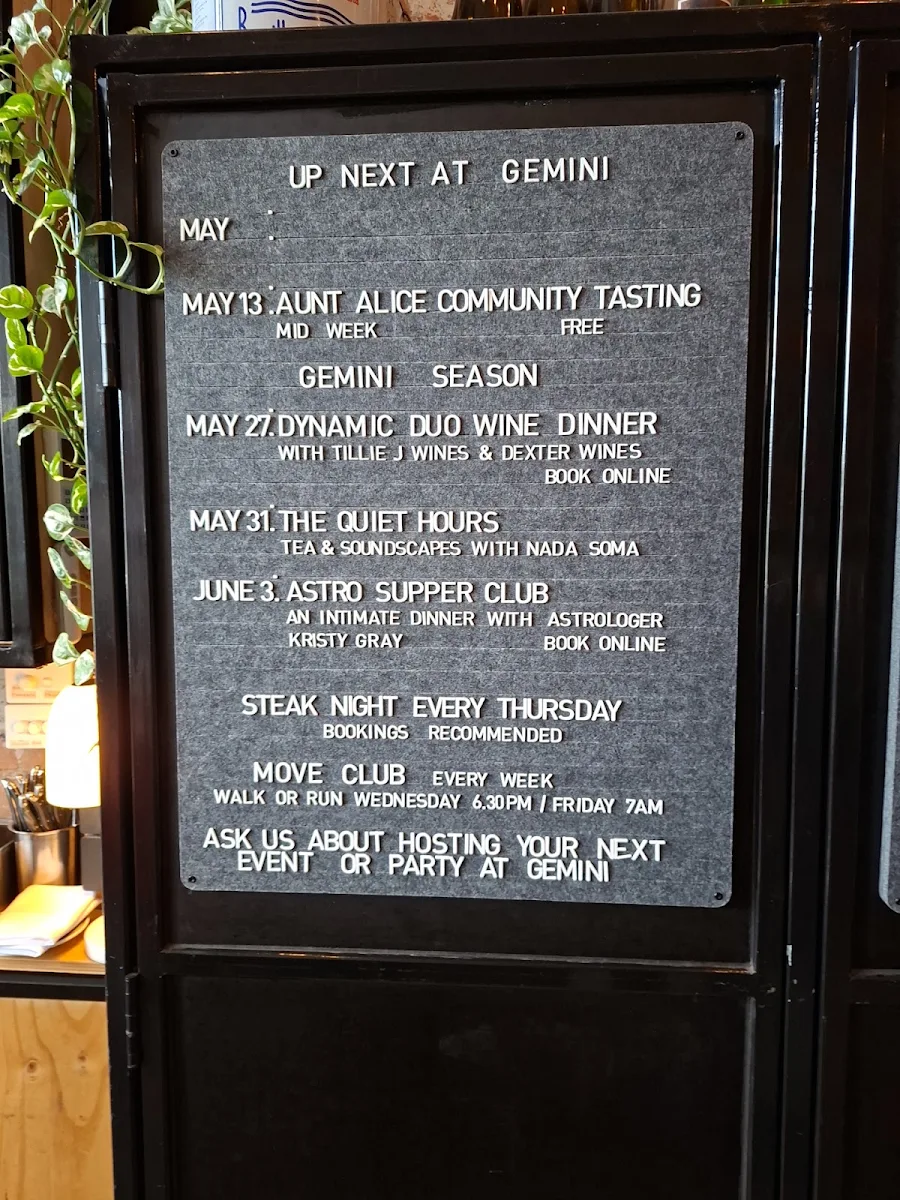 UP NEXT AT GEMINI
MAY :
MAY 13 : AUNT ALICE COMMUNITY TASTING
MID WEEK FREE
GEMINI SEASON
MAY 27: DYNAMIC DUO WINE DINNER
WITH TILLIE J WINES & DEXTER WINES
BOOK ONLINE
MAY 31: THE QUIET HOURS
TEA & SOUNDSCAPES WITH NADA SOMA
JUNE 3: ASTRO SUPPER CLUB
AN INTIMATE DINNER WITH ASTROLOGER
KRISTY GRAY BOOK ONLINE
STEAK NIGHT EVERY THURSDAY
BOOKINGS RECOMMENDED
MOVE CLUB EVERY WEEK
WALK OR RUN WEDNESDAY 6.30PM / FRIDAY 7AM
ASK US ABOUT HOSTING YOUR NEXT
EVENT OR PARTY AT GEMINI